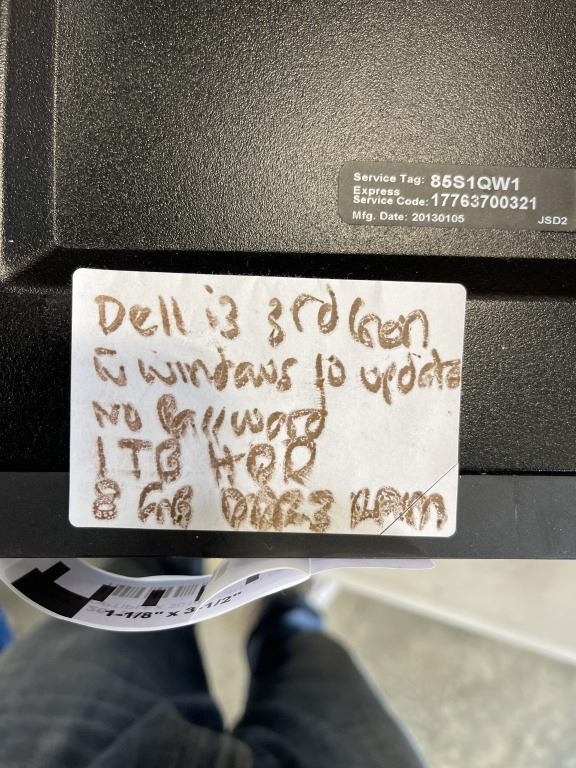 Service Tag: 85S1QW1
Express
Service Code: 17763700321
Mfg. Date: 20130105 JSD2
Dell i3 3rd Gen
windows 10 update
No Password
1TB HDD
8 GB DDR3 RAM
1-1/8" x 3-1/2"